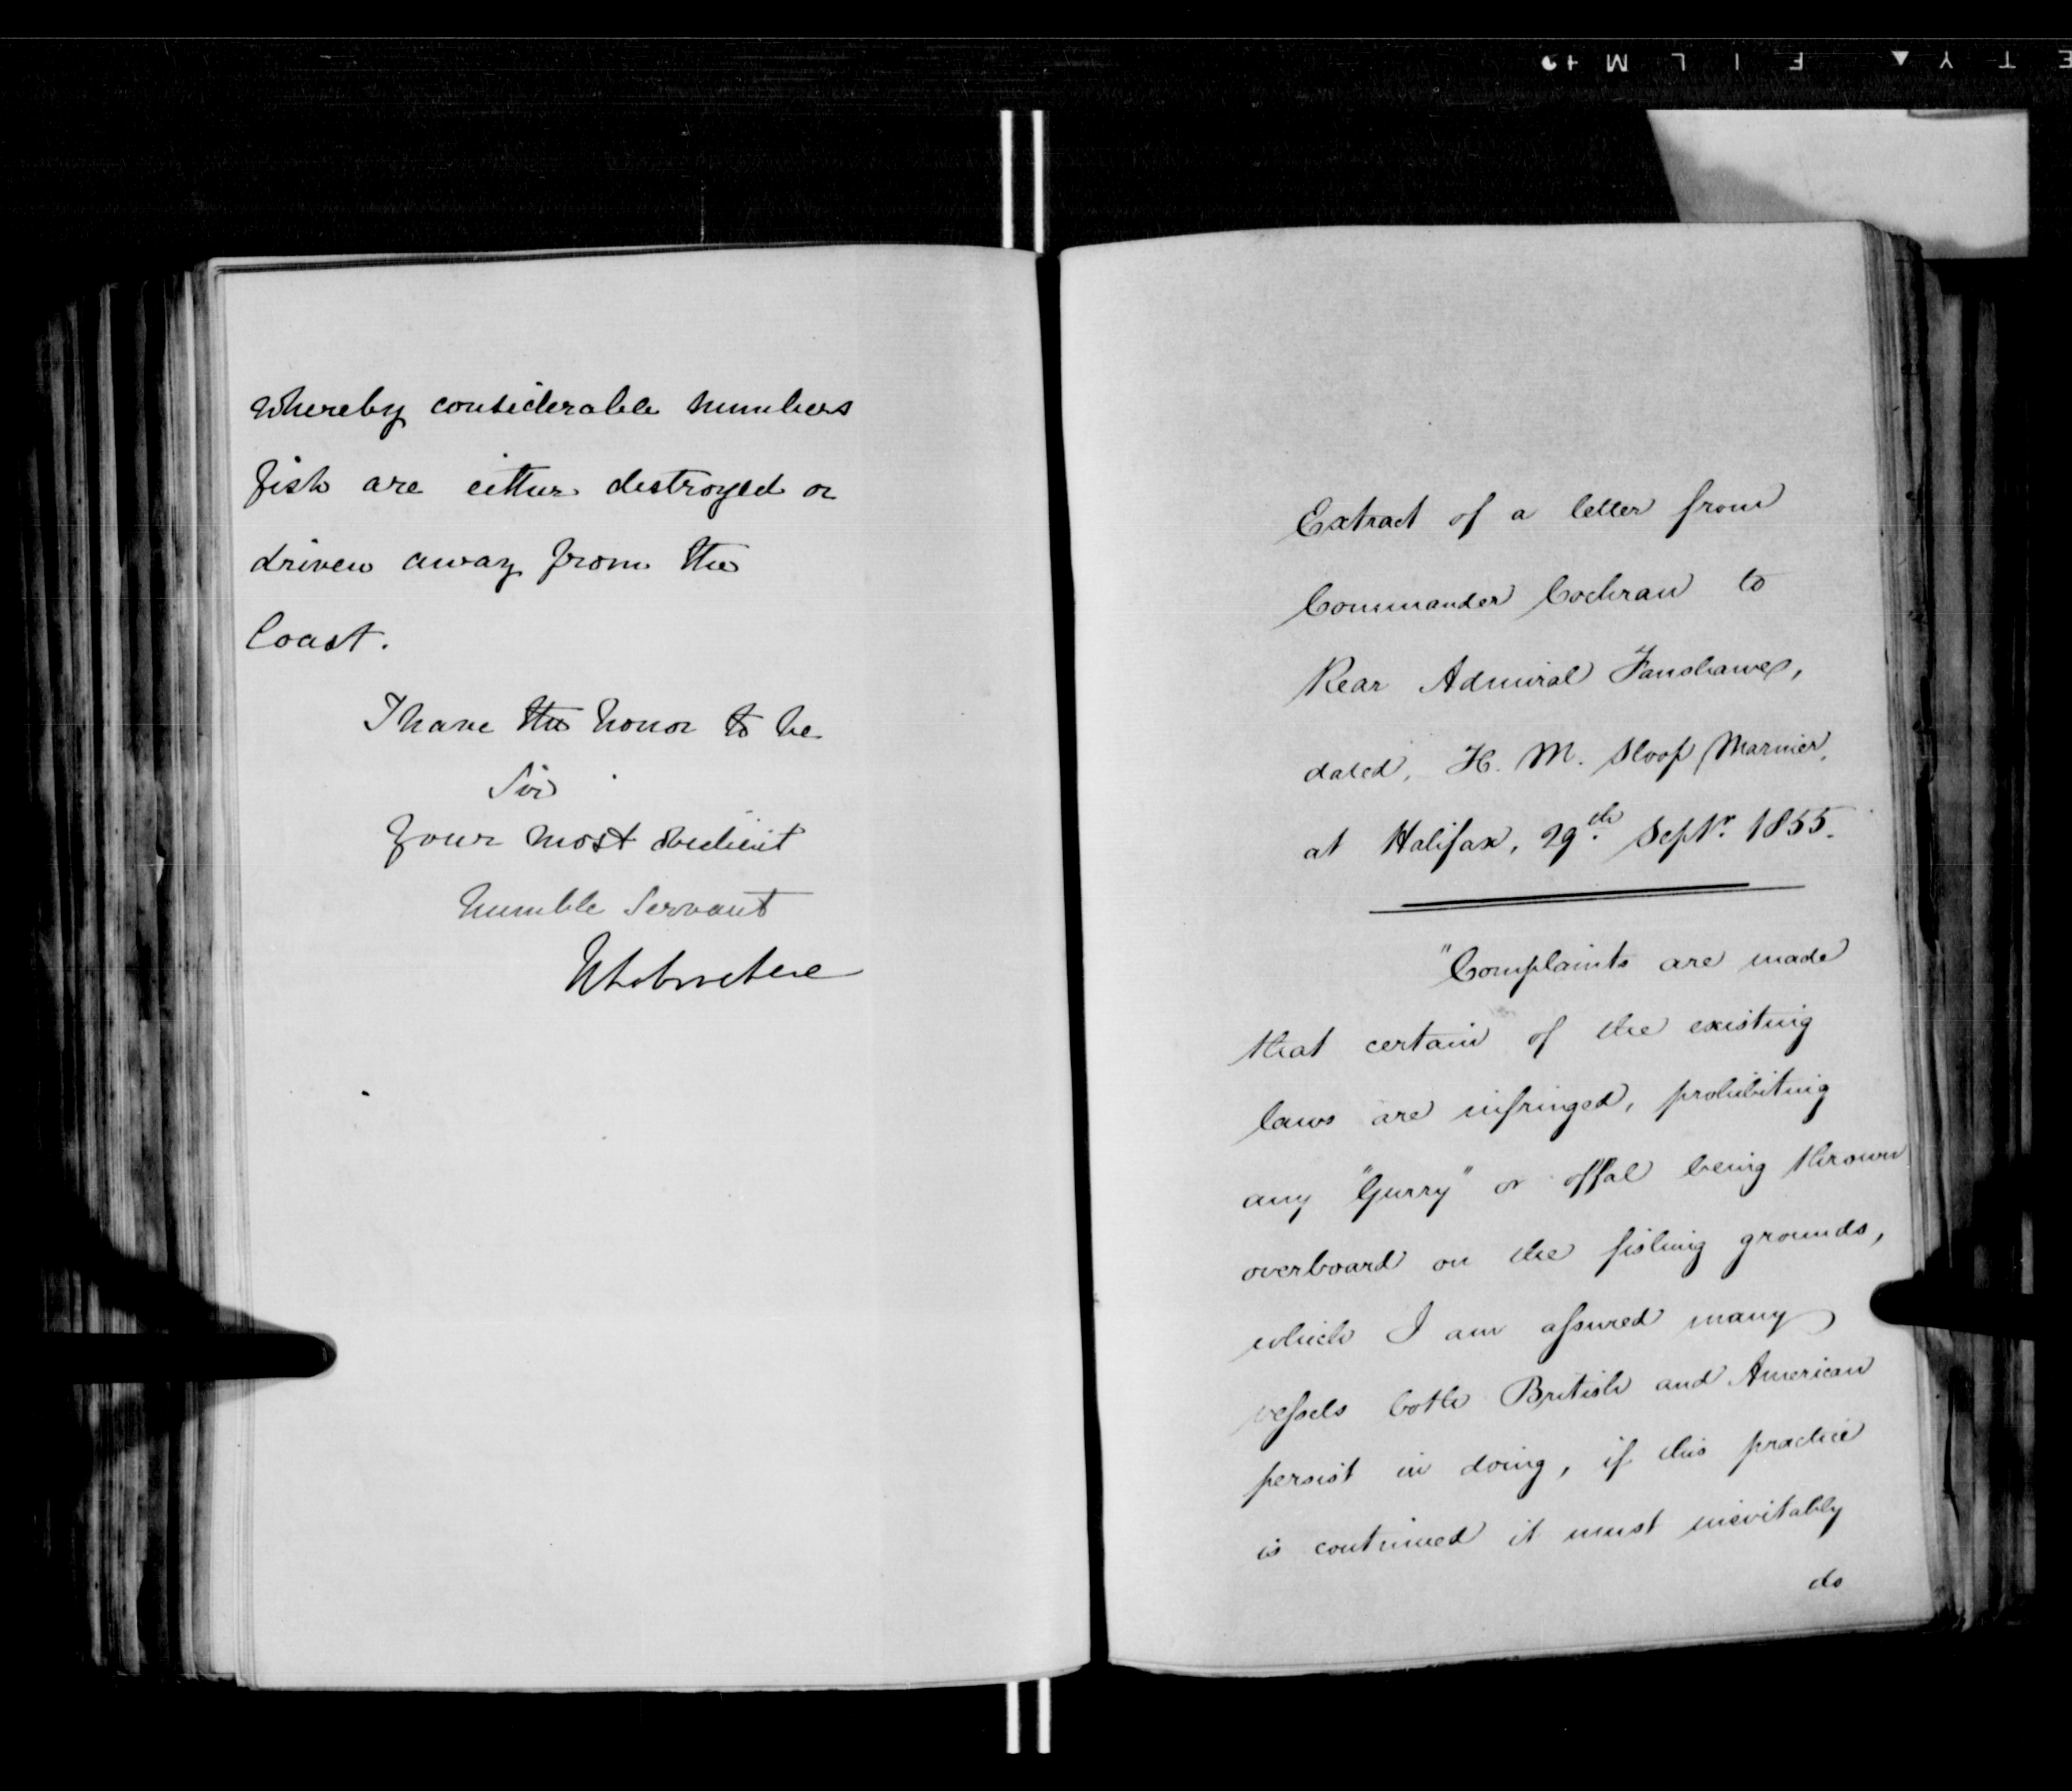 whereby considerable numbers
fish are either destroyed or
driven away from the
Coast.
I have the honor to be
Sir
Your most obedient
humble Servant
Extract of a letter from
Commander Cochran to
Rear Admiral Fanshawe,
dated, H. M. Sloop Mariner,
at Halifax, 29th Septr. 1855.
"Complaints are made
that certain of the existing
laws are infringed, prohibiting
any "Gurry" or offal being thrown
overboard on the fishing grounds,
which I am assured many
vessels both British and American
persist in doing, if this practice
is continued it must inevitably
do